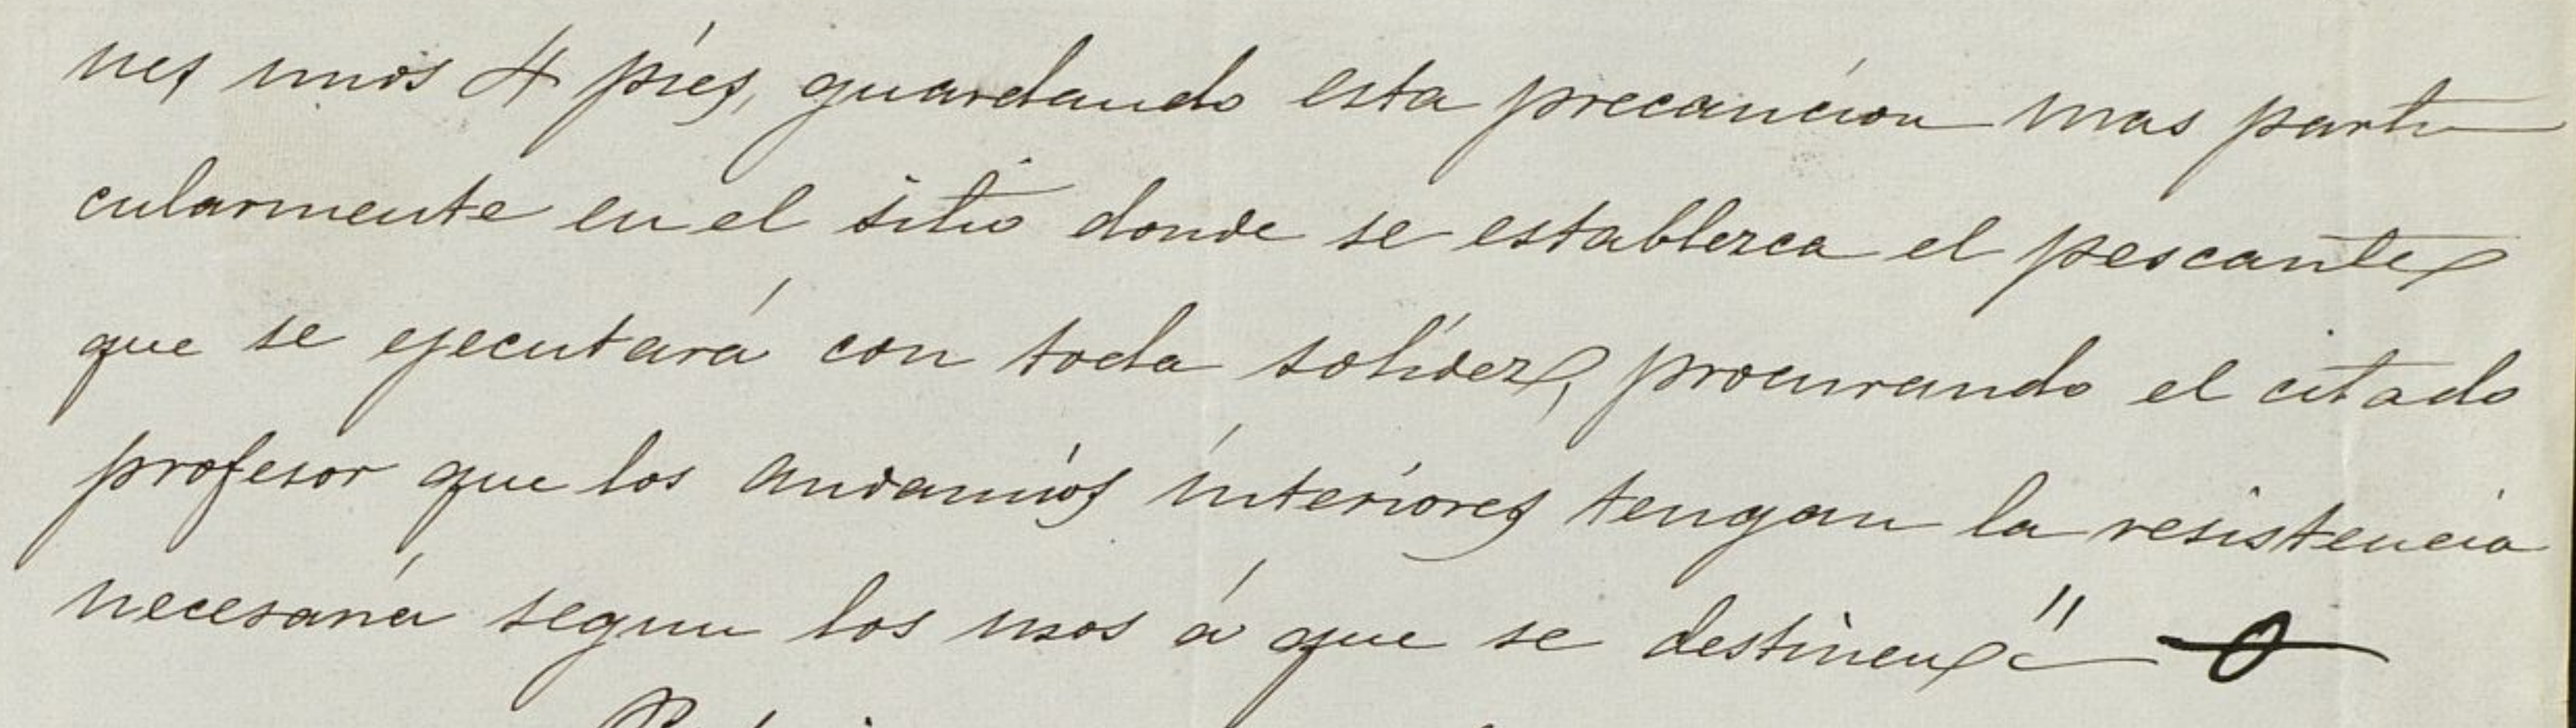 nes unos 4 pies, guardando esta precaucion mas parti
cularmente en el sitio donde se establezca el pescante
que se ejecutará con toda solidez, procurando el citado
profesor que los andamios interiores tengan la resistencia
necesaria segun los usos á que se destinen"